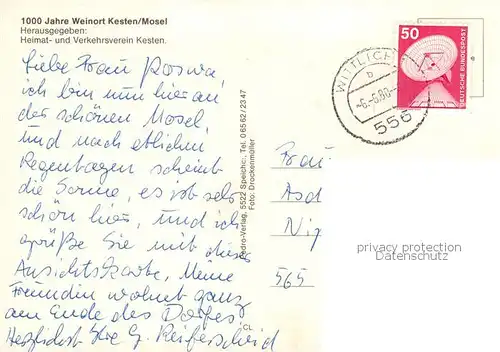 1000 Jahre Weinort Kesten/Mosel
Herausgegeben:
Heimat- und Verkehrsverein Kesten.
Liebe Frau Roswa,
ich bin nun hier an
der schönen Mosel,
und nach etlichen
Regentagen scheint
die Sonne, es ist sehr
schön hier, und ich
grüße Sie mit dieser
Ansichtskarte, Meine
Freundin wohnt ganz
am Ende des Dorfes
Herzlichst Ihre G. Reiferscheid
-Verlag, 5522 Speicher, Tel. 0 65 62 / 23 47
Foto: Drockenmüller
CL
WITTLICH
b
-6.-6.80-
556
50
DEUTSCHE BUNDESPOST
Frau
Asd
Nig
565
privacy protection
Datenschutz AK